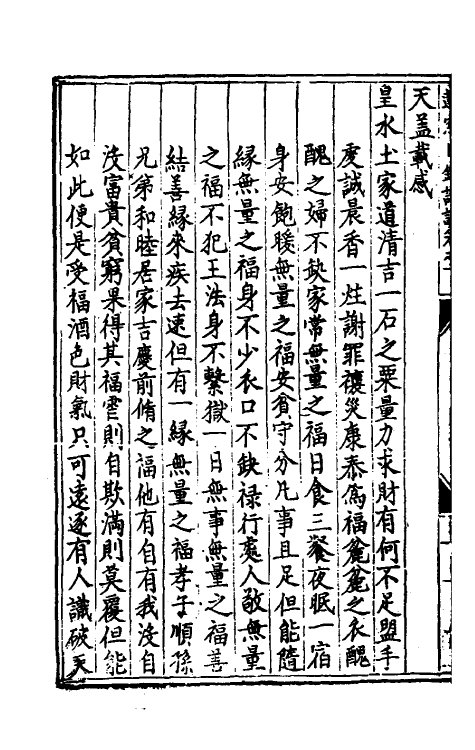 天盖載感
皇水土家道清吉一石之粟量力求財有何不足盟手
虔誠晨香一炷謝罪禳災康泰爲福麄麄之衣醜
醜之婦不缺家常無量之福日食三餐夜眠一宿
身安飽暖無量之福安貧守分凡事且足但能隨
緣無量之福身不少衣口不缺祿行處人敬無量
之福不犯王法身不繫獄一日無事無量之福善
結善緣來疾去速但有一緣無量之福孝子順孫
兄弟和睦居家吉慶前脩之福他有自有我沒自
沒富貴貧窮果得其福虛則自欺滿則莫覆但能
如此便是受福酒色財氣只可遠逐有人識破天